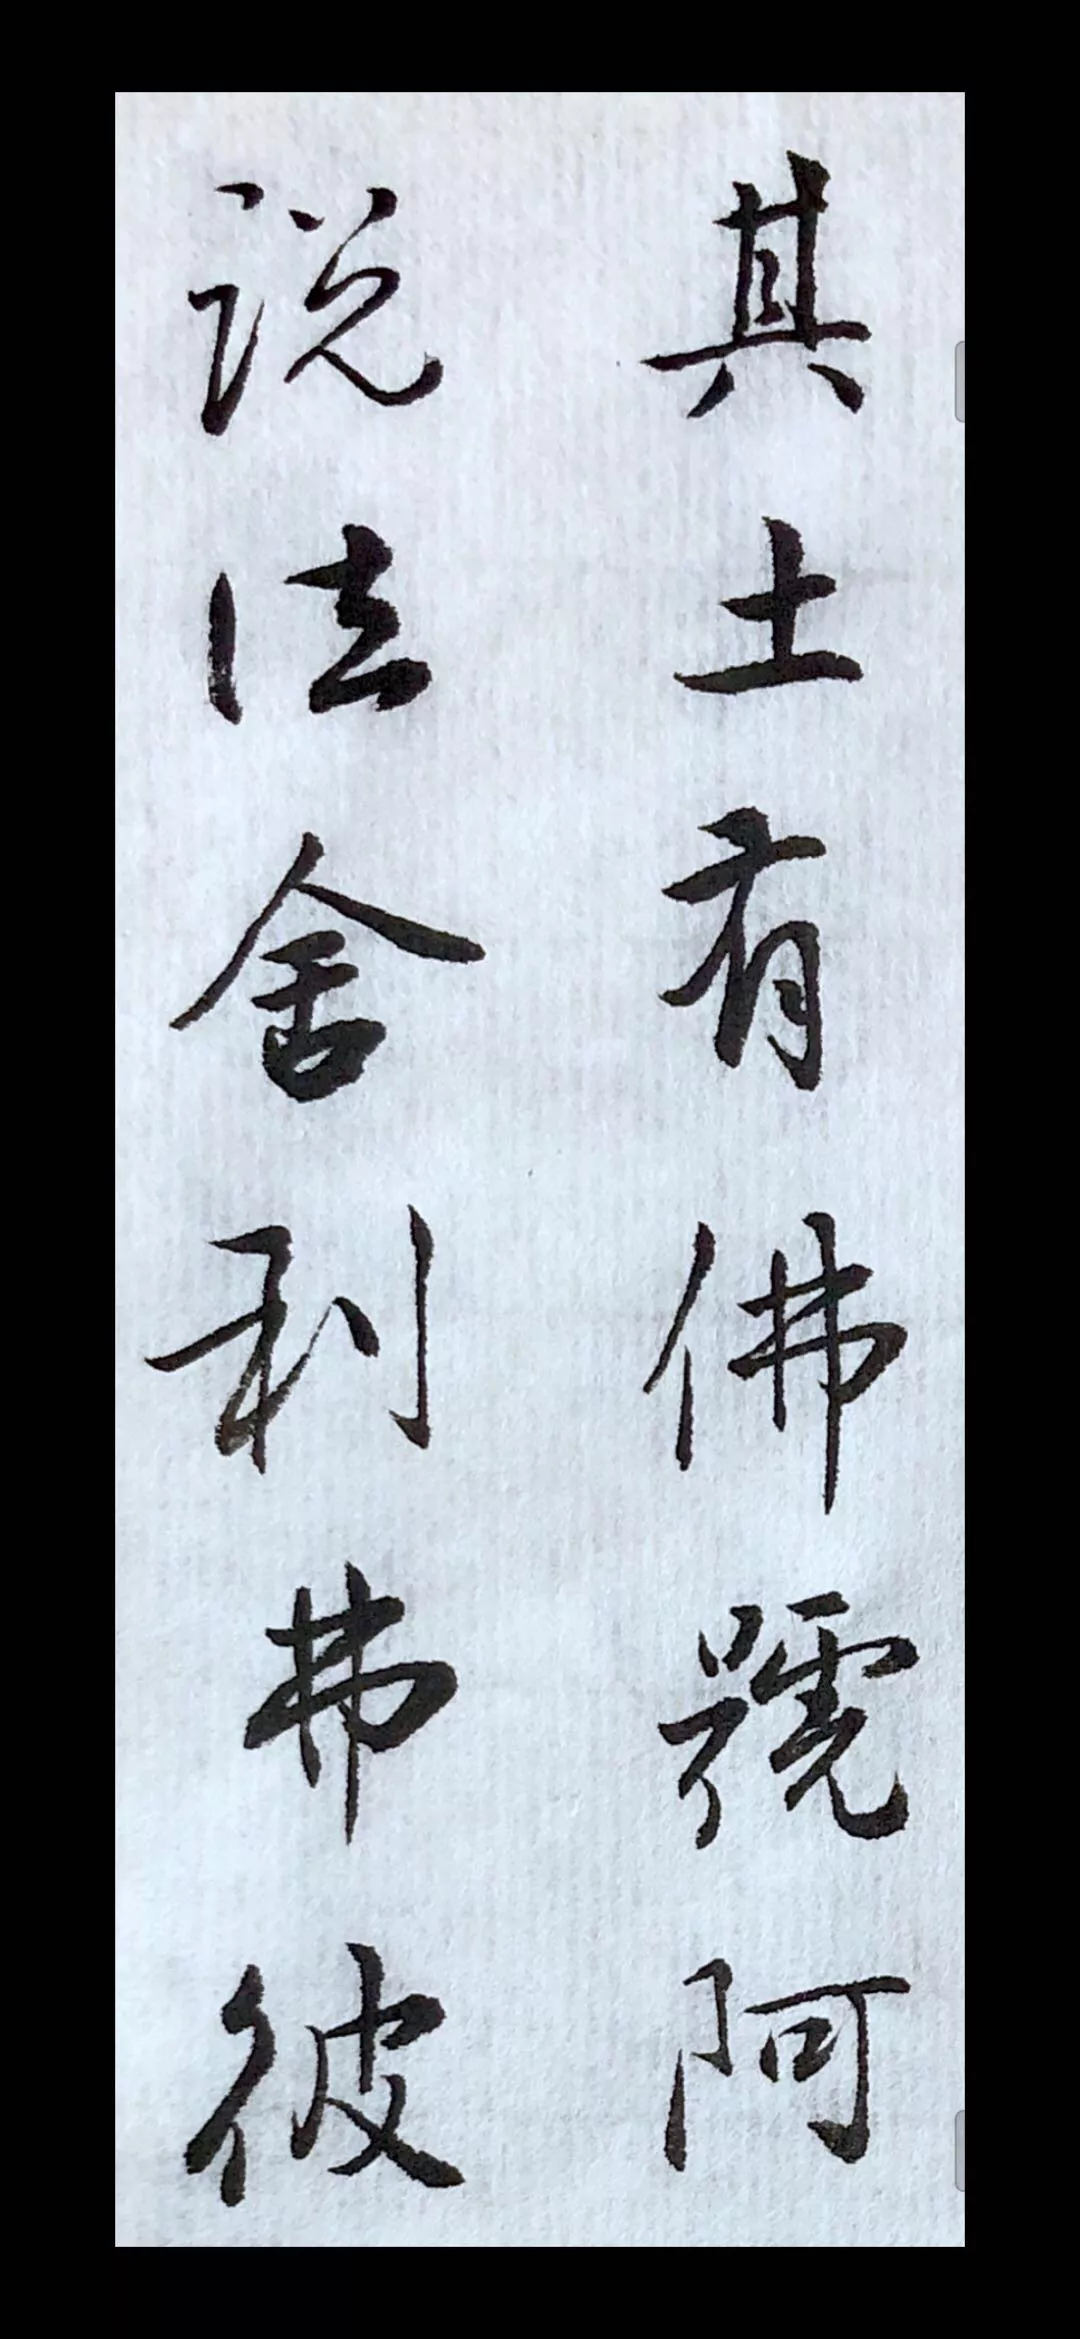 其土有佛號阿
説法舍利弗彼